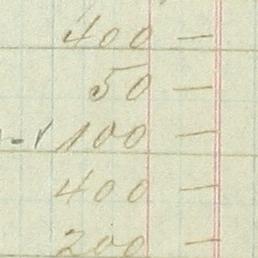 400 —
50 —
100 —
400 —
200 —